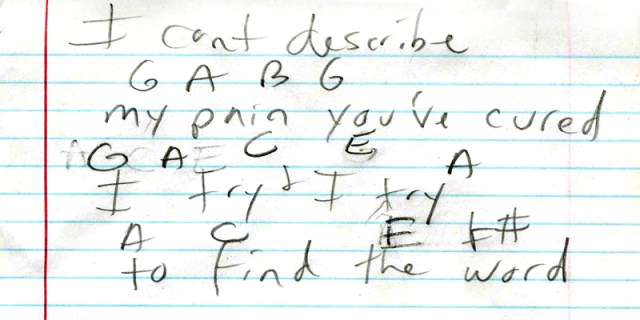 I cant describe
G A B G
my pain you've cured
G A C E A
I try & I try
A C E F#
to find the word